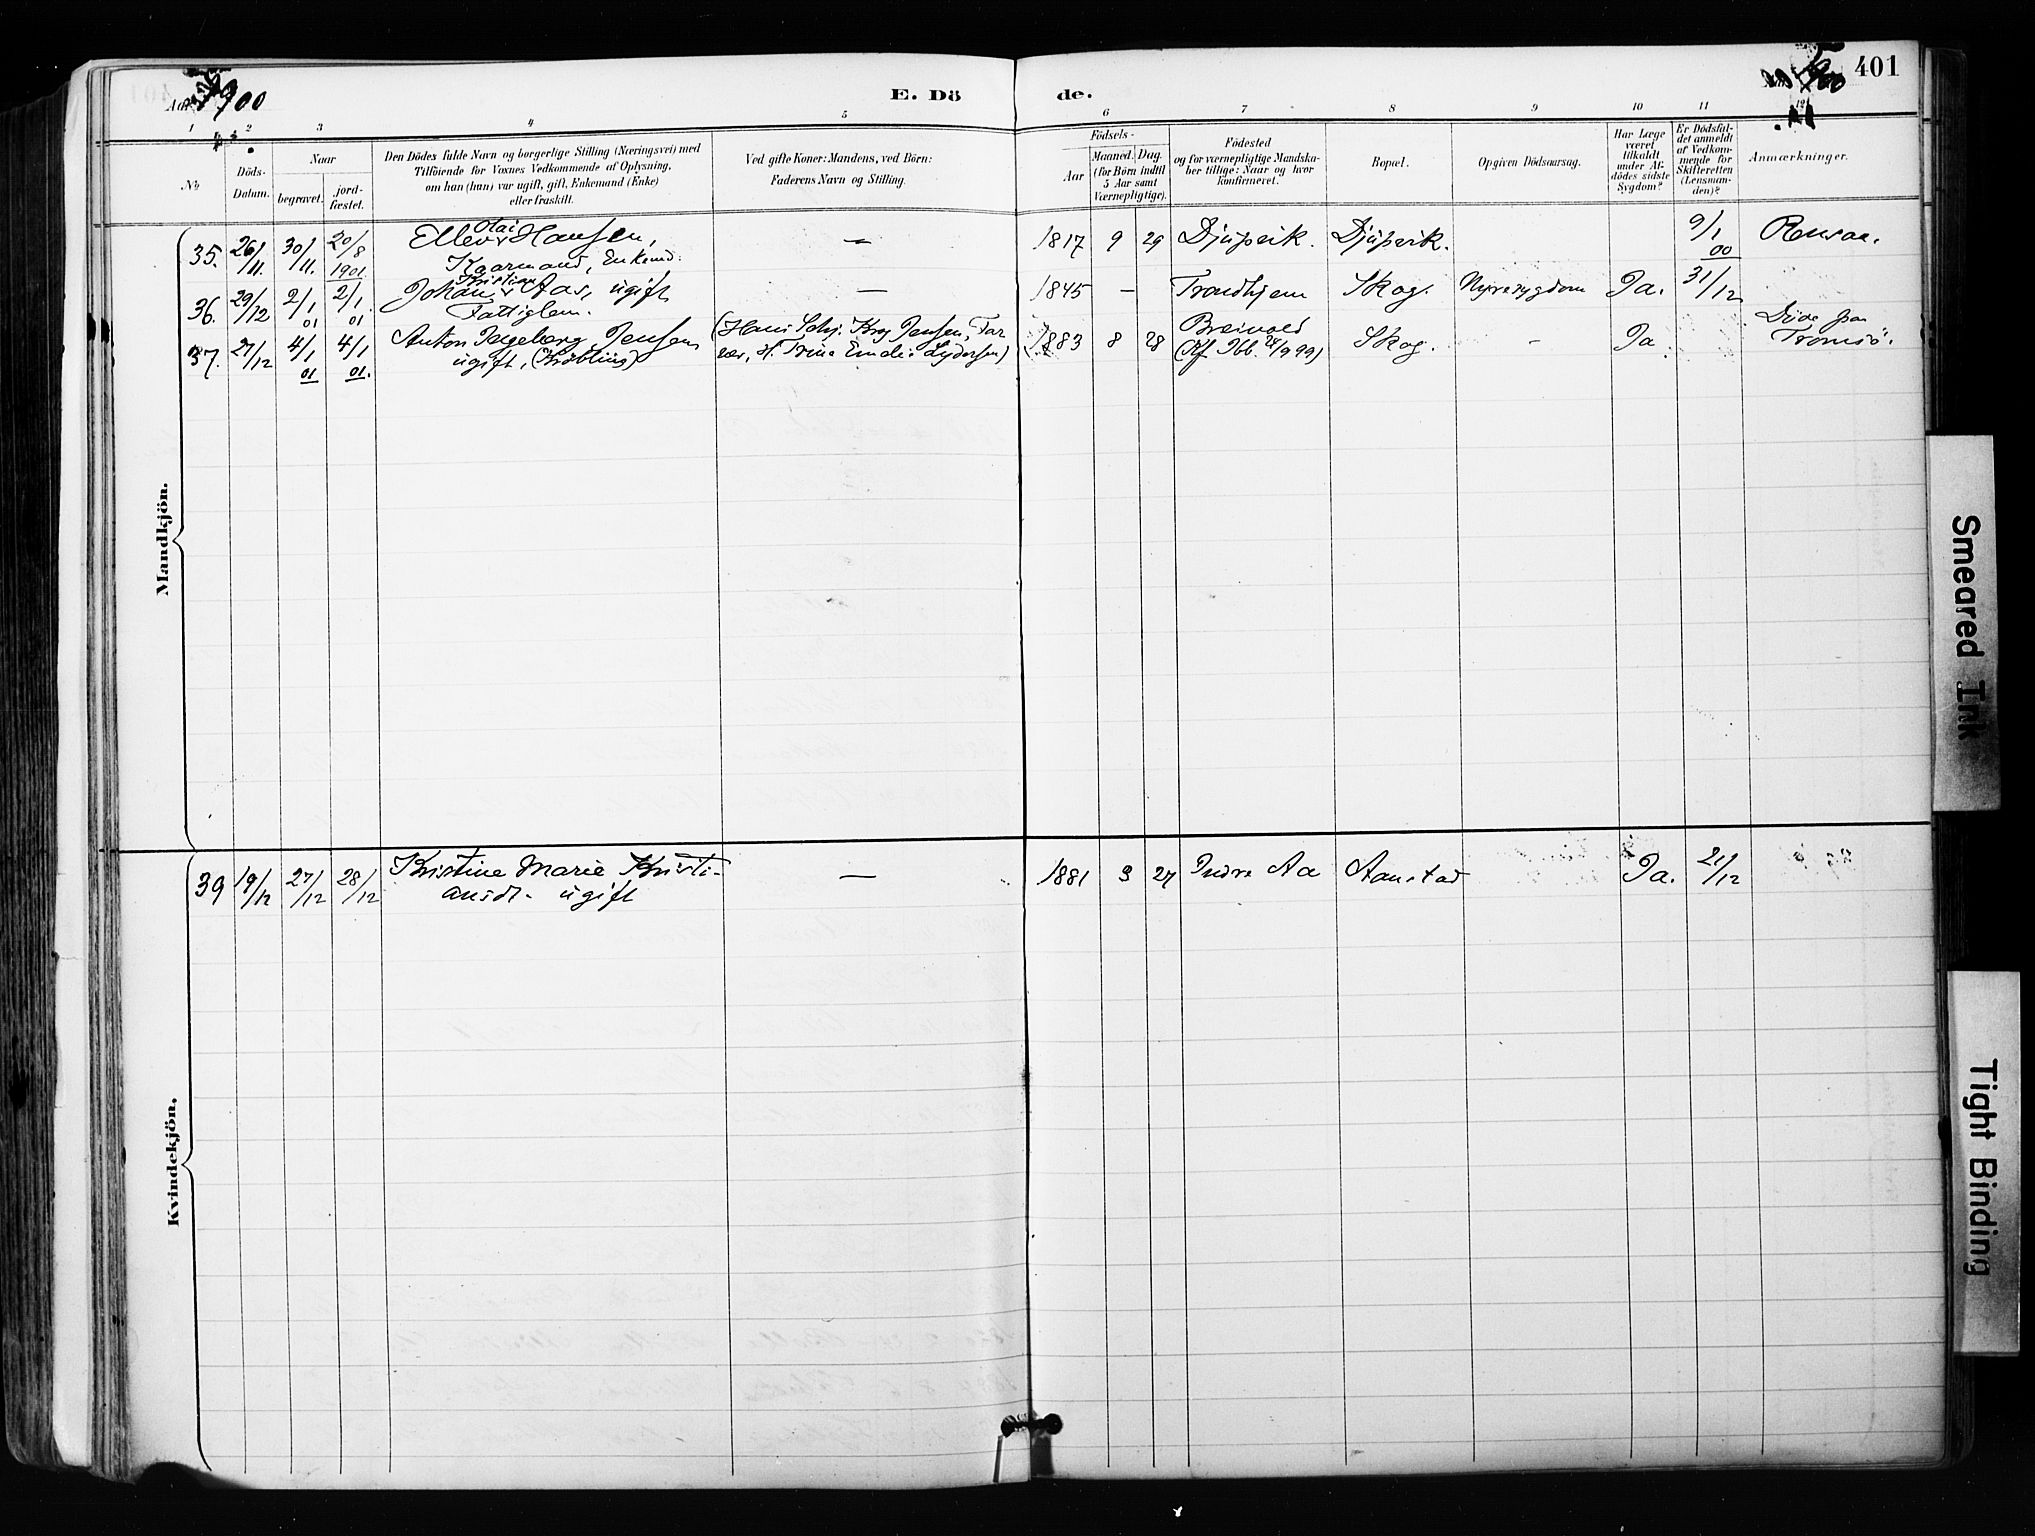 Aar 1900
E. Döde.
1900
401
1 2 3 4 5 6 7 8 9 10 11 12
№
Döds-Datum.
Naar
begravet.
jord-fæstet.
Den Dödes fulde Navn og borgerlige Stilling (Næringsvei) med
Tilföiende for Voxnes Vedkommende af Oplysning,
om han (hun) var ugift, gift, Enkemand (Enke)
eller fraskilt.
Ved gifte Koner: Mandens, ved Börn:
Faderens Navn og Stilling.
Födsels-
Aar
Maaned. Dag.
(for Börn indtil
5 Aar samt
Værnepligtige).
Födested
og for værnepligtige Mandska-
ber tillige: Naar og hvor
konfirmeret.
Bopæl.
Opgiven Dödsaarsag.
Har Læge
været
tilkaldt
under Af-
dödes sidste
Sygdom?
Er Dödsfal-
det anmeldt
af Vedkom-
mende for
Skifteretten
(Lensman-
den)?
Anmærkninger.
Mandkjön.
35. 26/11. 30/11. 20/8 1901 Ellev Olai Hansen, — 1817 9 29 Djupvik. Djupvik. 9/1 00
Kaarmand, Enkemd.
36. 29/12 2/1 01 2/1 01 Johan Kristian Aas, ugift — 1845 — Trondhjem Skog. Nyresygdom Ja. 31/12
Fattiglem.
37. 27/12 4/1 01 4/1 01. Anton Ingeberg Jensen (Hans Schj. Krog Jensen, 1883 8 28 Breivold Skog. - Ja
ugift, H. Trine Emelie Lydersen) (Kf. Ibb. 24/9 99) Tromsö.
Kvindekjön.
39 19/12 27/12 28/12 Kristine Marie Kristi- — 1881 3 27 Indre Aa Aanstad Ja. 21/12
ansdt. ugift
Smeared Ink
Tight Binding